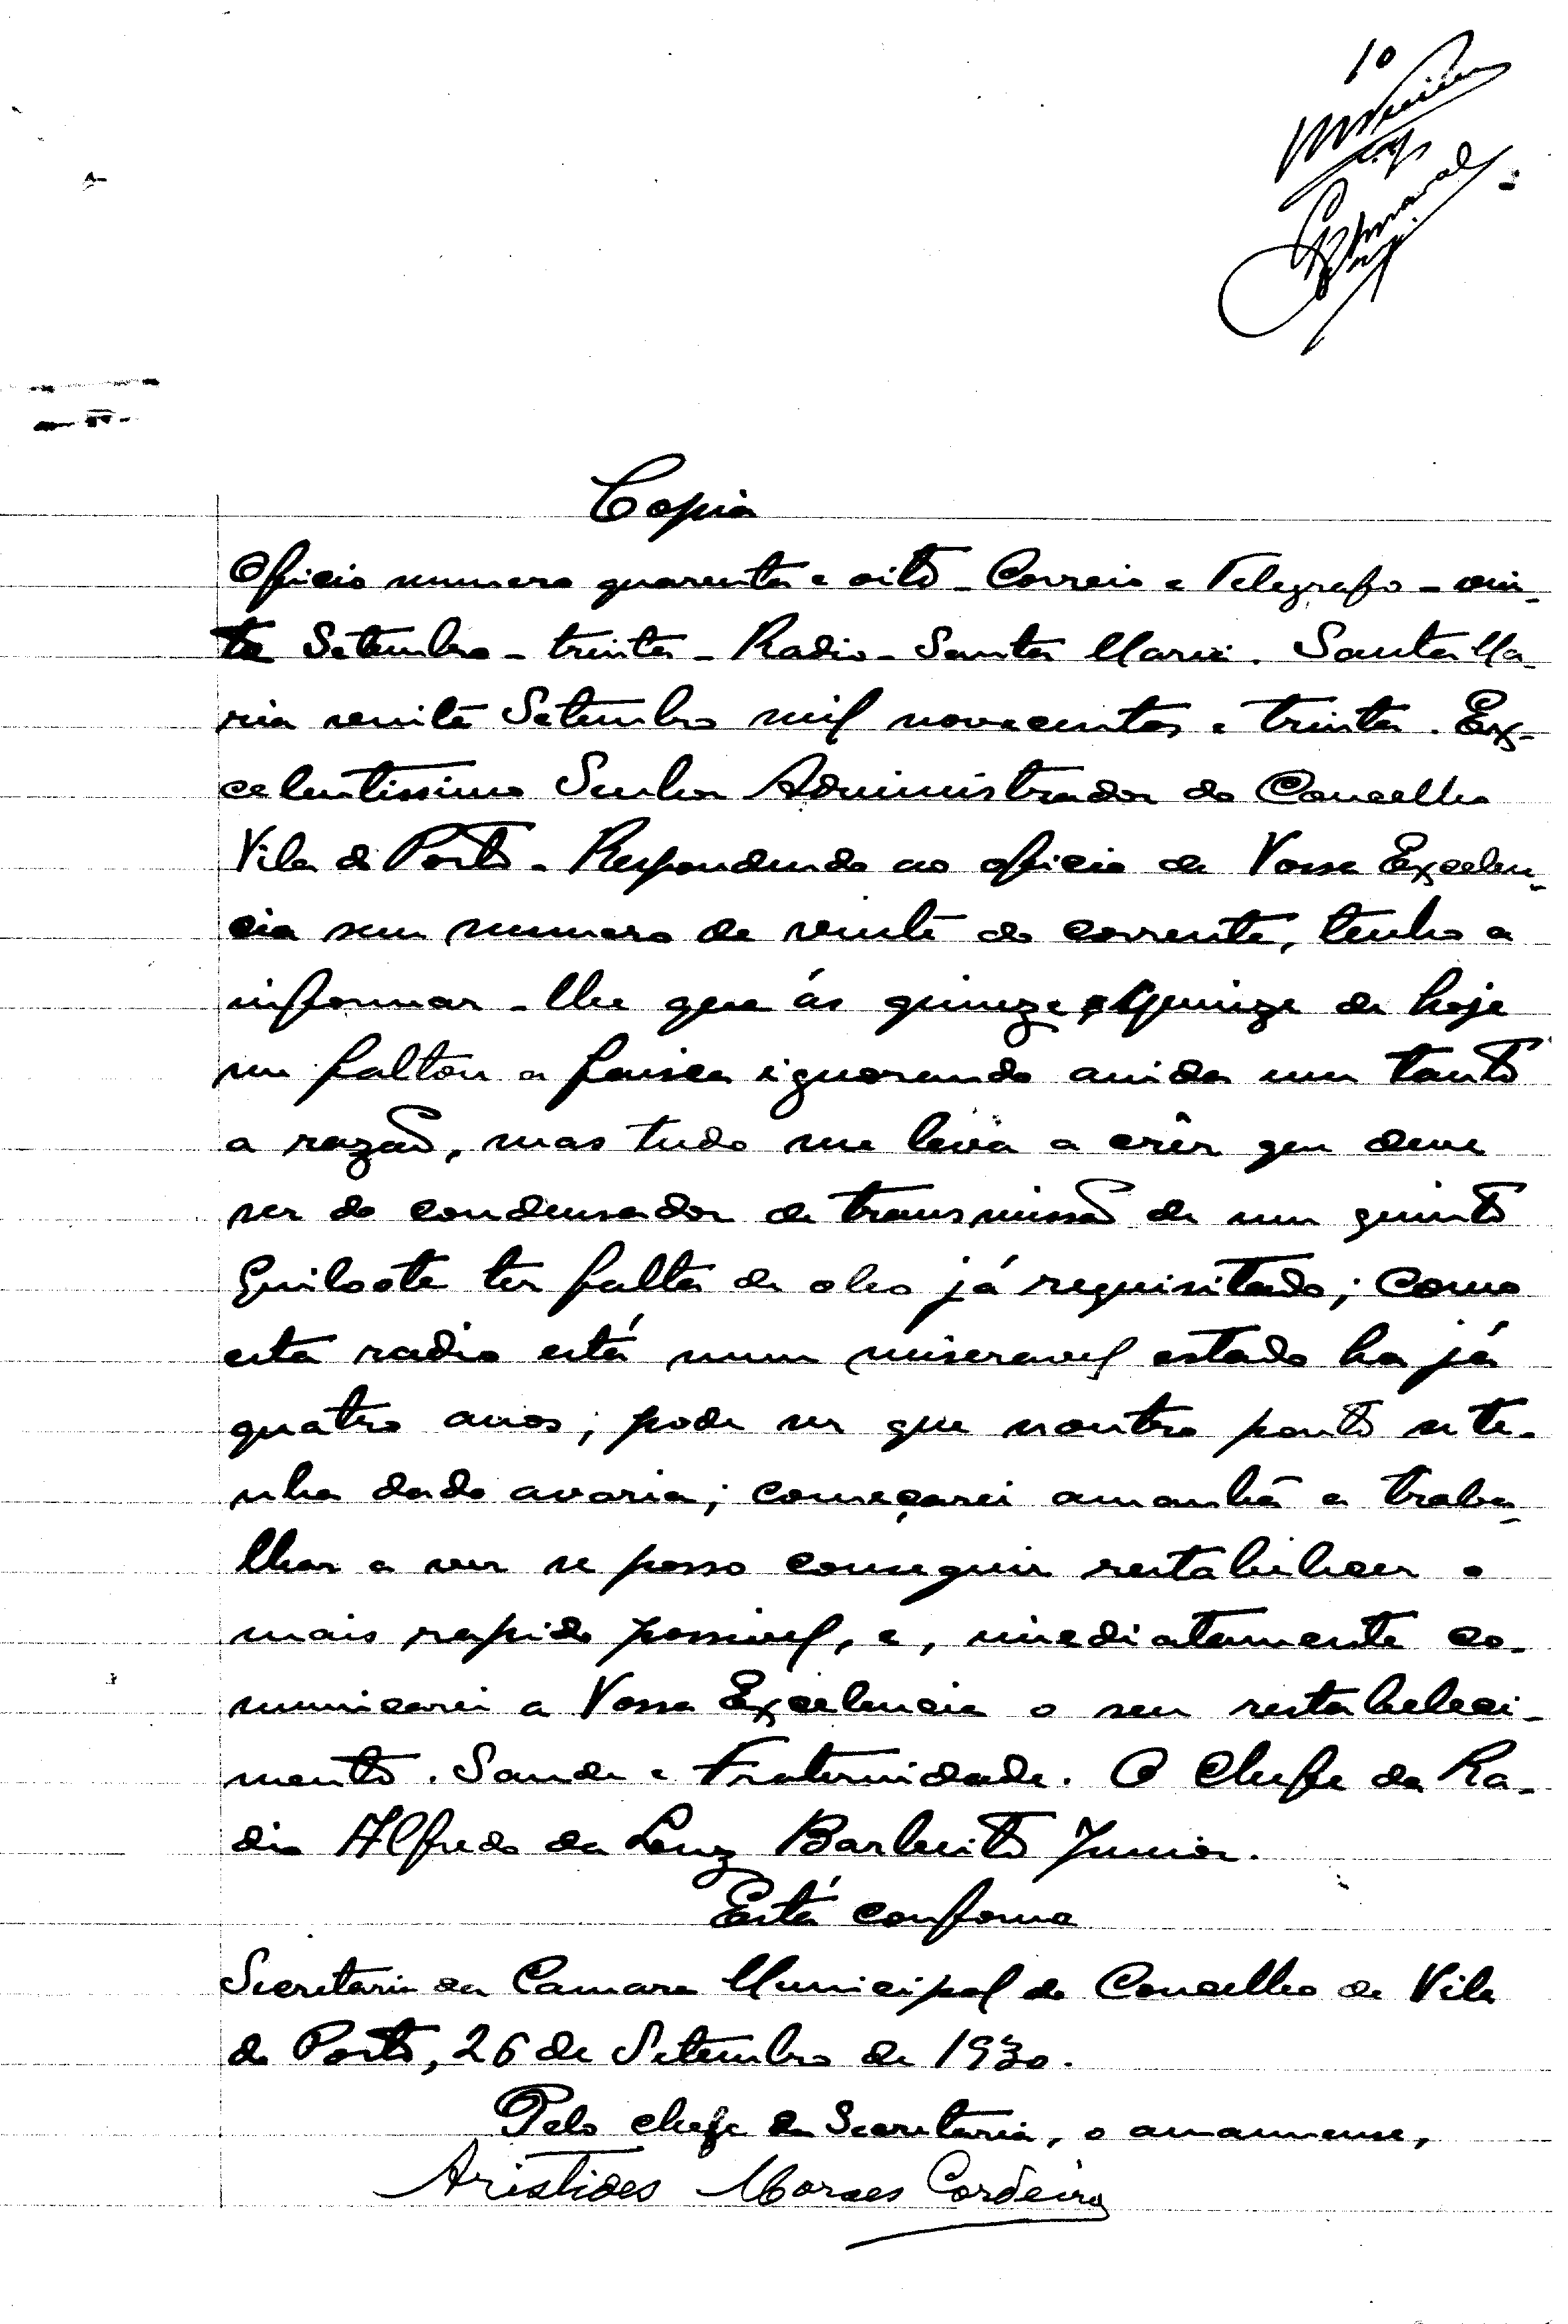 10
Copia
Oficio numero quarenta e oito - Correio e Telegrafo - vin-
te Setembro - trinta - Radio - Santa Maria. Santa Ma-
ria vinte Setembro mil novecentos e trinta. Ex-
celentissimo Senhor Administrador do Concelho
Vila do Porto - Respondendo ao oficio de Vossa Excelen-
cia sem numero de vinte do corrente, tenho a
informar-lhe que ás quinze e quinze de hoje
me faltou a faisca ignorando ainda um tanto
a razão, mas tudo me leva a crêr que deve
ser do condensador de transmissão de um quinto
ter falta de oleo já requisitado; como
esta radio está num miseravel estado ha já
quatro anos; pode ser que noutro ponto se te-
nha dado avaria; começarei amanhã a traba-
lhar a ver se posso conseguir restabelecer o
mais rapido possivel, e, imediatamente co-
municarei a Vossa Excelencia o seu restabeleci-
mento. Saude e Fraternidade. O Chefe da Ra-
dio Alfredo da Luz Barbeito Junior.
Está conforme
Secretaria da Camara Municipal do Concelho de Vila
do Porto, 26 de Setembro de 1930.
Pelo chefe da Secretaria, o amanuense,
Aristides Moraes Cordeiro